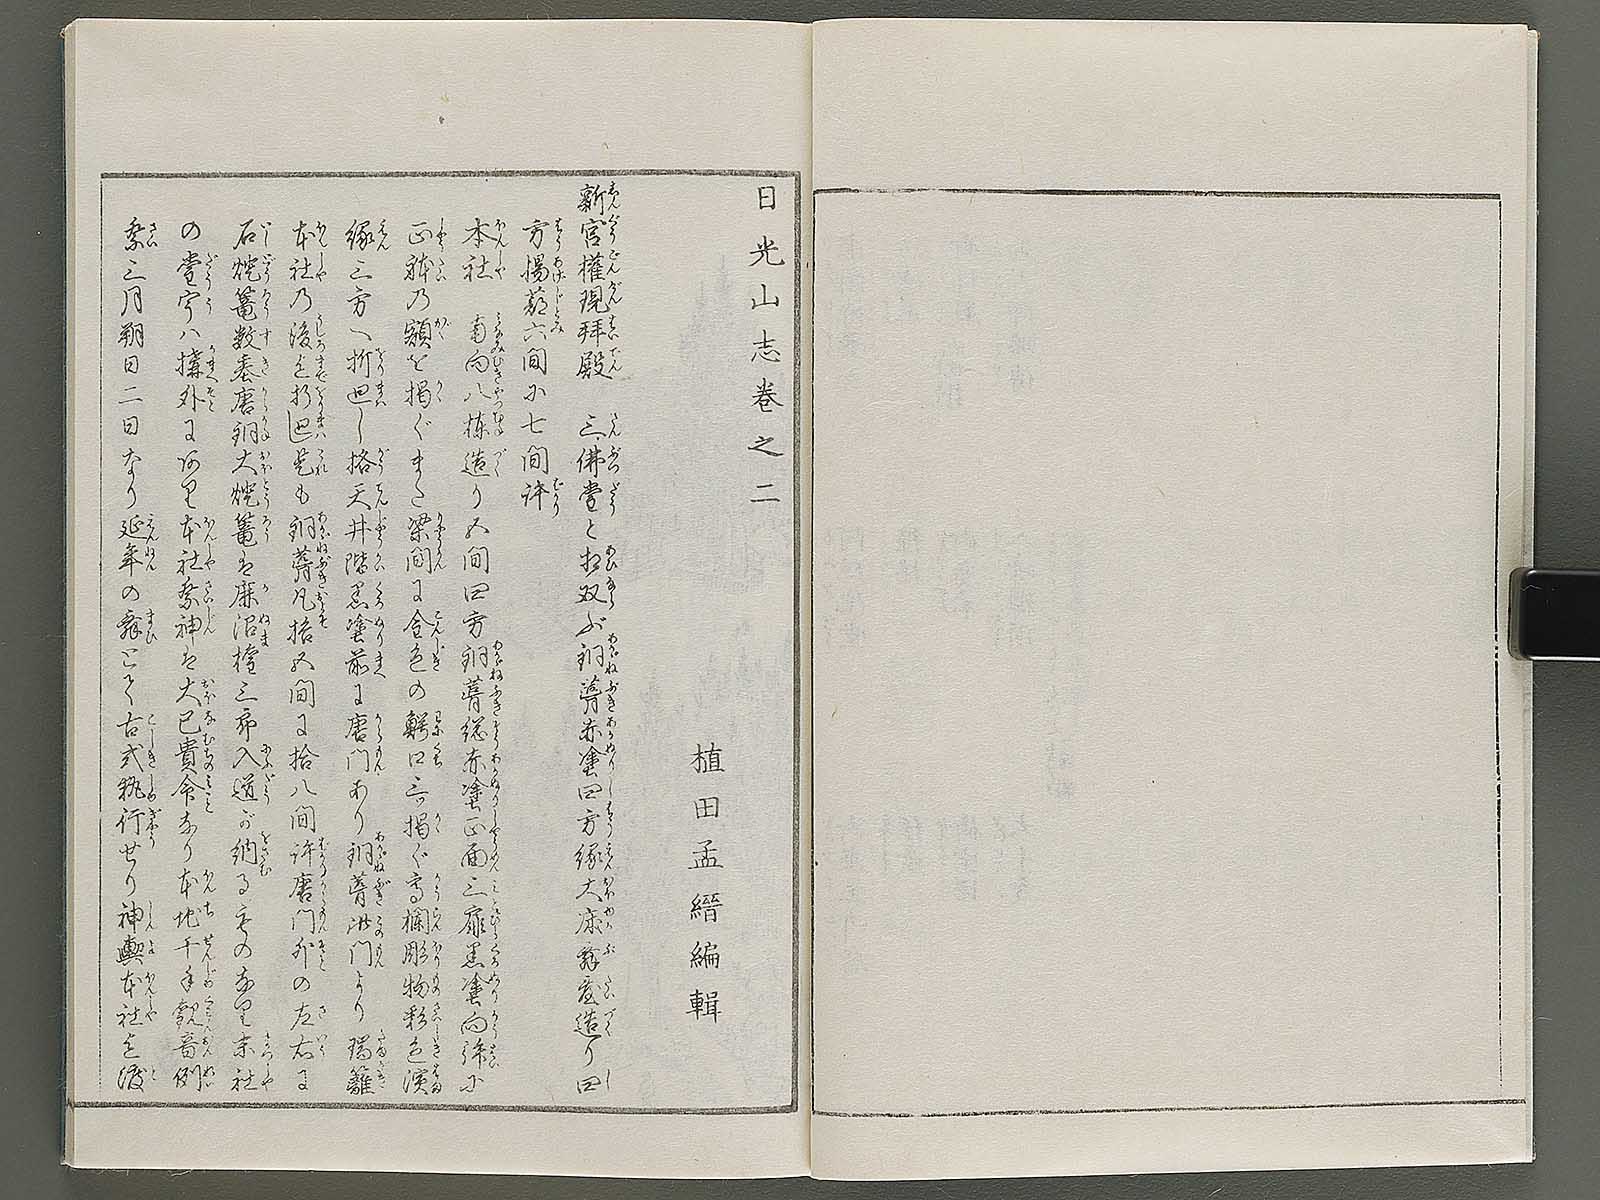 日光山志卷之二
植田孟縉編輯
新宮權現拜殿　三佛堂と相双ぶ銅葺赤塗四方縁大床舞臺造り四
方揚蔀六間に七間許
本社　南向八棟造り五間四方銅葺總赤塗正面三扉黒塗向拜に
正躰の額を掲ぐまた梁間に金色の鰐口三ツ掲ぐ高欄彫物彩色濱
縁三方へ折廻し格天井階黒塗前に唐門あり銅葺此門より瑞籬
本社の後を折廻し是も銅葺凡拾五間に拾八間許唐門外の左右に
石燈篭數基唐銅大燈篭は鹿沼權三郎入道が納る ものなり末社
の堂宇ハ搆外にあり本社祭神は大己貴命なり本地千手觀音例
祭三月朔日二日なり延年の舞とて古式執行せり神輿本社を渡